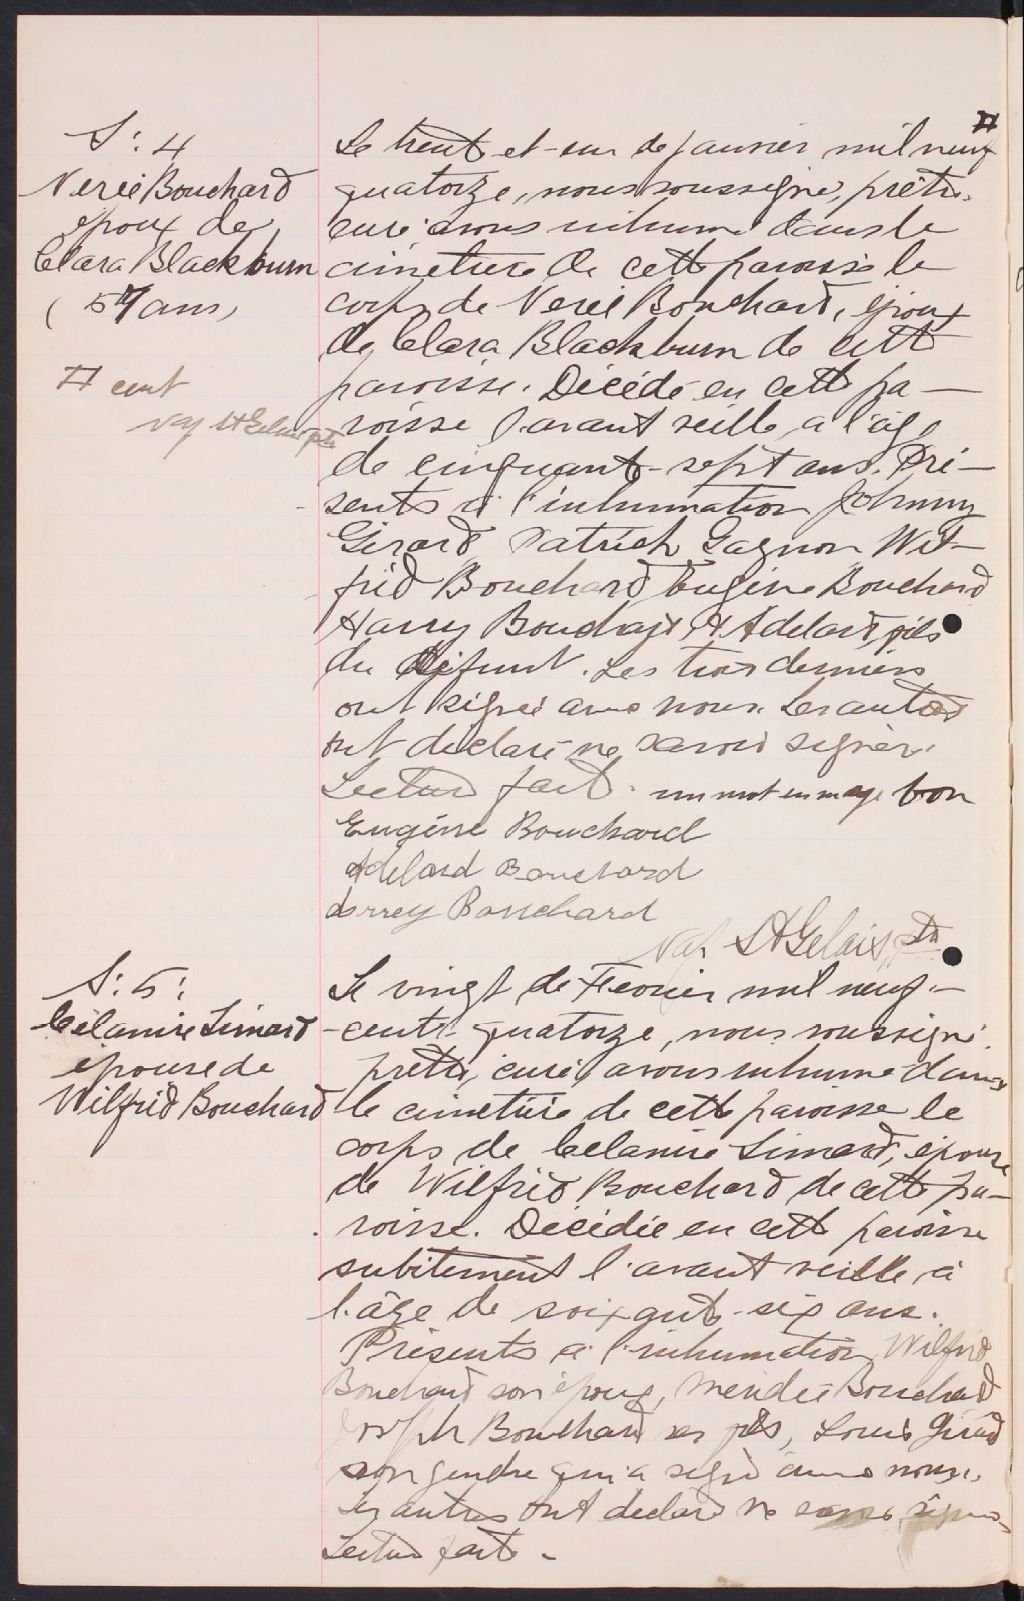 S: 4
Nereé Bouchard
epoux de
Clara Blackburn
( 57 ans)
# cent
Nap StGelais ptr
Le trente et un de janvier mil neuf #
quatorze, nous soussigné, prêtre,
curé avons inhumé dans le
cimetière de cette paroisse le
corps de Nereé Bouchard, époux
de Clara Blackburn de cette
paroisse. Décédé en cette pa-
roisse l'avant veille, a l'âge
de cinquante-sept ans. Pré-
sents à l'inhumation Johnny
Girard Patrick Gagnon Wil-
frid Bouchard Eugène Bouchard
Harry Bouchard & Adelard, fils
du défunt. Les trois derniers
ont signé avec nous. Les autres
ont déclaré ne savoir signer.
Lecture faite. un mot en marge bon
Eugène Bouchard
Adelard Bouchard
Harrey Bouchard
Nap StGelais, ptr
S: 5:
Célanire Simard
epouse de
Wilfrid Bouchard
Le vingt de Fevrier mil neuf-
-cent-quatorze, nous soussigné
prêtre, curé, avons inhumé dans
le cimetière de cette paroisse le
corps de Celanire Simard, épouse
de Wilfrid Bouchard de cette pa-
roisse. Décédée en cette paroisse
subitement l'avant veille, à
l'âge de soixante-six ans.
Présents à l'inhumation Wilfrid
Bouchard son époux, Mendée Bouchard
Joseph Bouchard ses fils, Louis Girard
son gendre qui a signé avec nous.
Les autres ont déclaré ne savoir signer
Lecture faite -